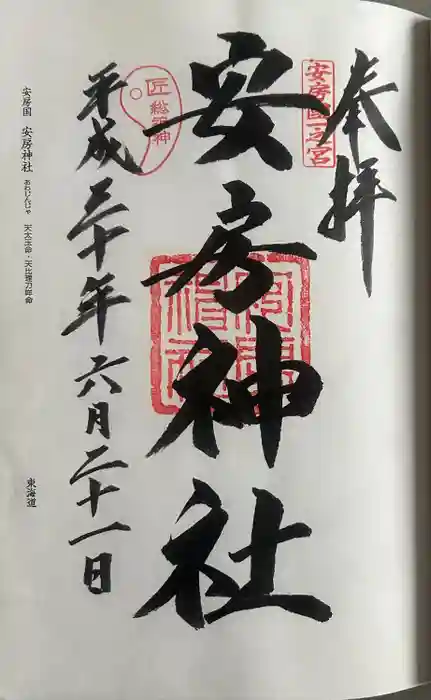 奉拝
安房國一之宮
安房神社
匠総祖神
平成三十年六月二十一日
安房国 安房神社 あわじんじゃ 天太玉命・天比理刀咩命
東海道